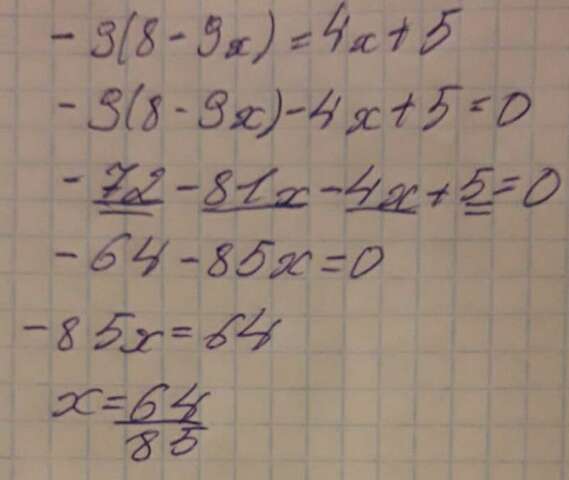 -9(8-9x)=4x+5
-9(8-9x)-4x+5=0
-72-81x-4x+5=0
-64-85x=0
-85x=64
x=64/85